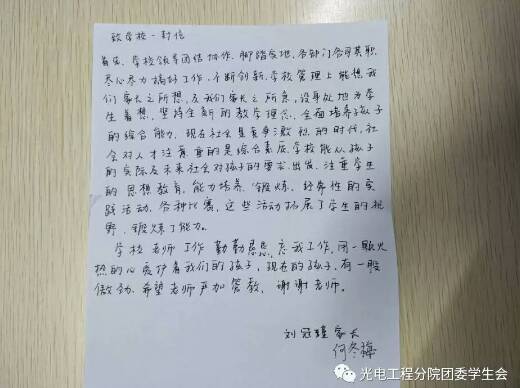 致学校一封信
首先、学校领导团结协作、脚踏实地、各部门各司其职
尽心尽力搞好工作、不断创新、学校管理上能想我
们家长之所想、急我们家长之所急、设身处地为学
生着想、坚持全新的教学理念、全面培养孩子
的综合能力、现在社会是竞争激烈的时代、社
会对人才注重的是综合素质、学校能从孩子
的实际及未来社会对孩子的要求出发、注重学生
的思想教育、能力培养、锻炼、经常性的实
践活动、各种比赛、这些活动拓展了学生的视
野、锻炼了能力。
学校老师工作勤勤恳恳、忘我工作、用一颗火
热的心爱护着我们的孩子、现在的孩子、有一股
傲劲、希望老师严加管教、谢谢老师。
刘冠瑾家长
何冬梅
光电工程分院团委学生会